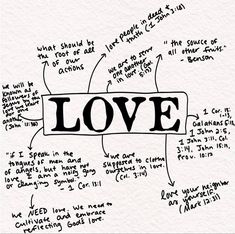 what should be
the root of all
of our
actions
love people in deed &
truth (1 John 3:18)
we are to serve
one another
in love (Gal.
5:13)
"the source of
all other fruits."
- Benson
we will be
known as
followers of
by our
love for
one
(John 13:35)
LOVE
"if I speak in the
tongues of men and
of angels, but have not
love I am a noisy gong
or clanging symbol."
- 1 Cor. 13:1
we are
supposed to clothe
ourselves in love.
(Col. 3:14)
1 Cor. 13,
Galatians 5:13,
1 John 2:5,
1 John 3:11,
1 John 3:14, 15:17,
Prov. 10:12
love your neighbor
as yourself
(Mark 12:31)
we NEED love. We need to
cultivate and embrace
reflecting God's love.